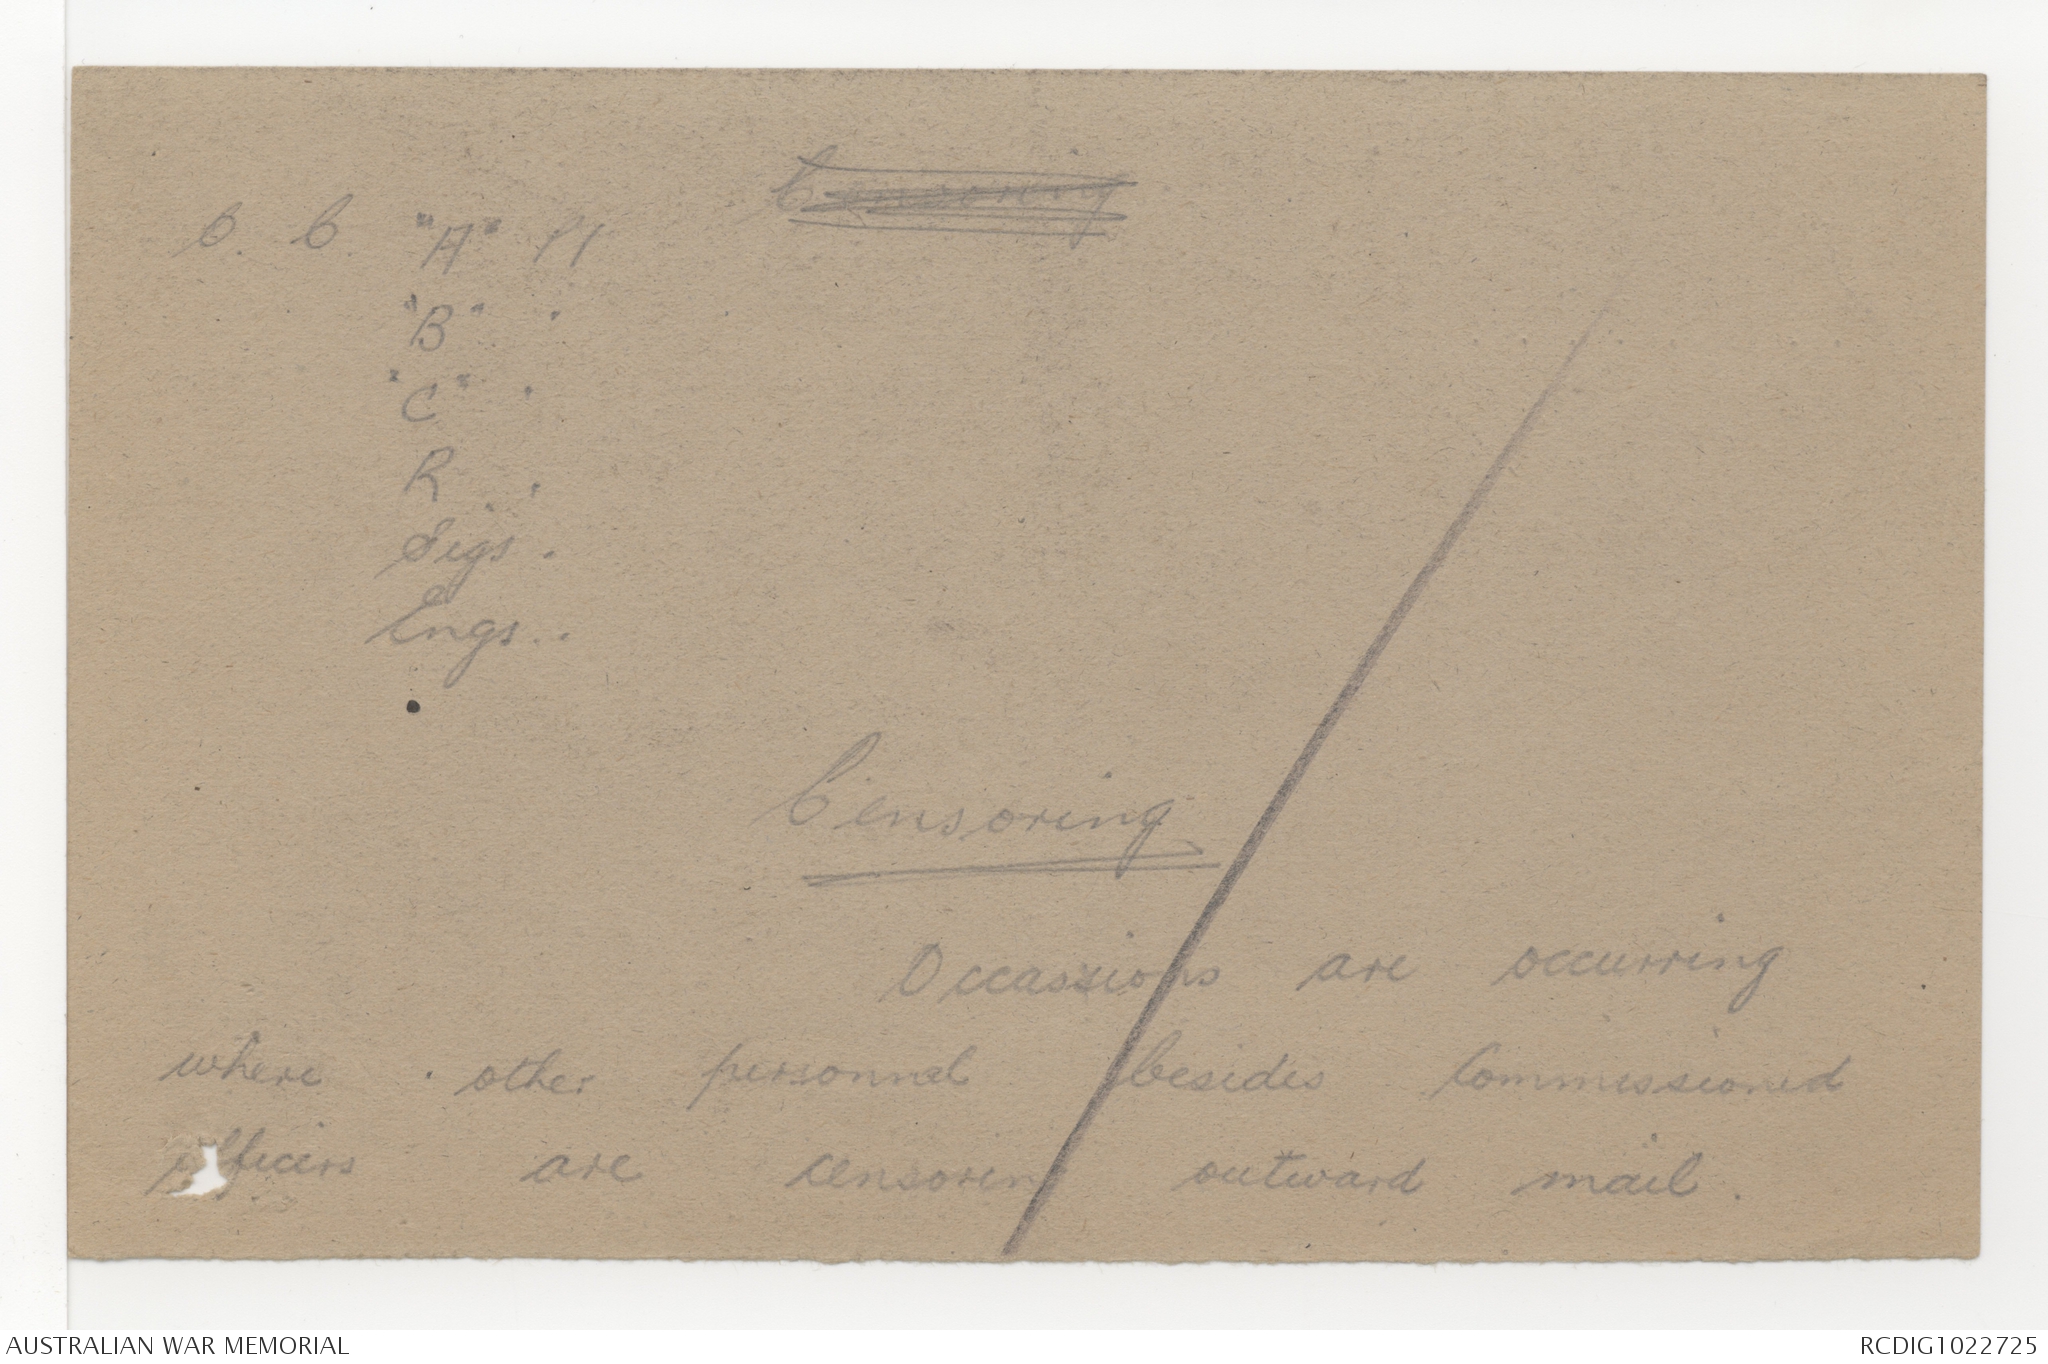 Censoring
O. C. "A" Pl
"B" "
"C" "
R "
Sigs. "
Engs. "
Censoring
Occassions are occurring
where other personnel besides Commissioned
officers are censoring outward mail.
AUSTRALIAN WAR MEMORIAL
RCDIG1022725